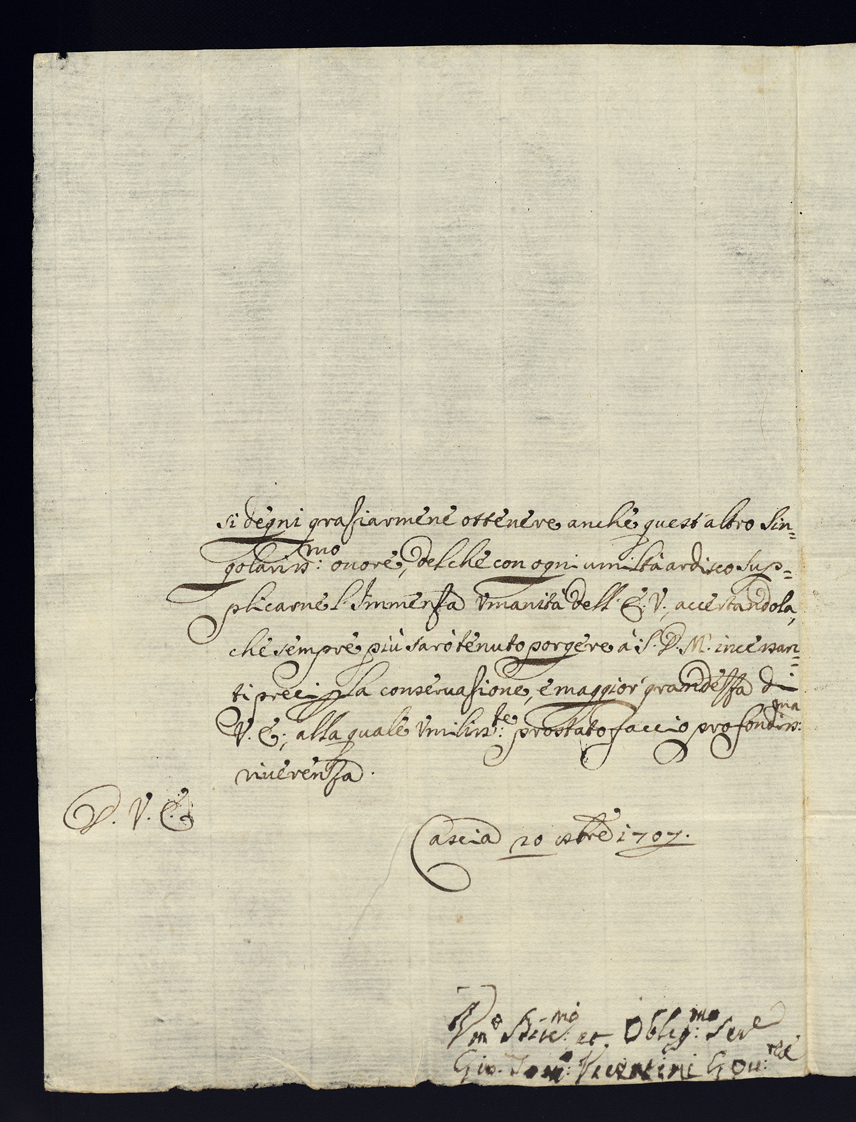 si degni grasiarmene ottenere anche quest'altro sin=
golariss:mo onore, del che con ogni umiltà ardisco sup=
plicarne l'Immensa Umanità dell'E. V., accertandola,
che sempre più sarò tenuto porgere à S. D. M. incessan=
ti preci p la conservasione, e maggior grandessa di
V. E., alla quale Umiliss:te prostato faccio profondiss:ma
riverensa.
D. V. E.
Cascia 20 8bre 1707.
Um:o Dev:mo et Oblig:mo Ser.e
Gio. Vicentini Gov:re